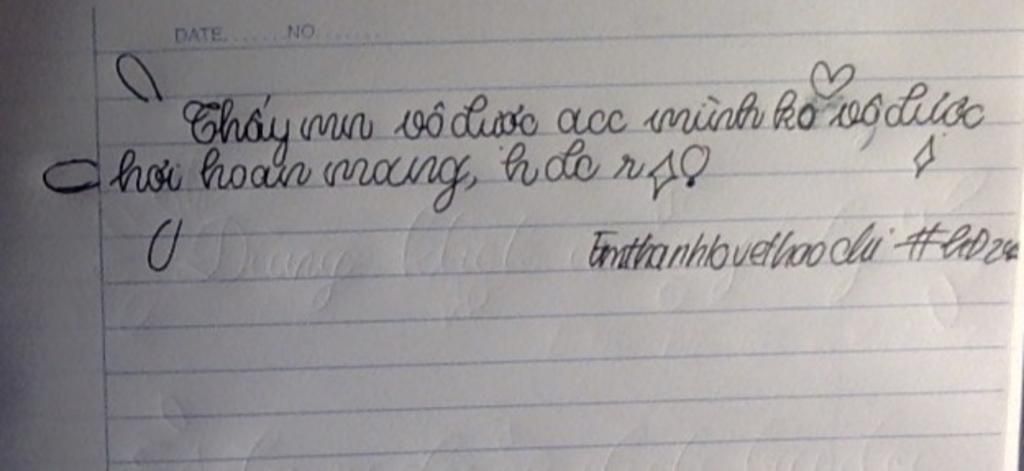 DATE.......NO.......
Thấy mn vô được acc mình ko vô được
hơi hoan mang, h đc r
Emthanhlovethaochi